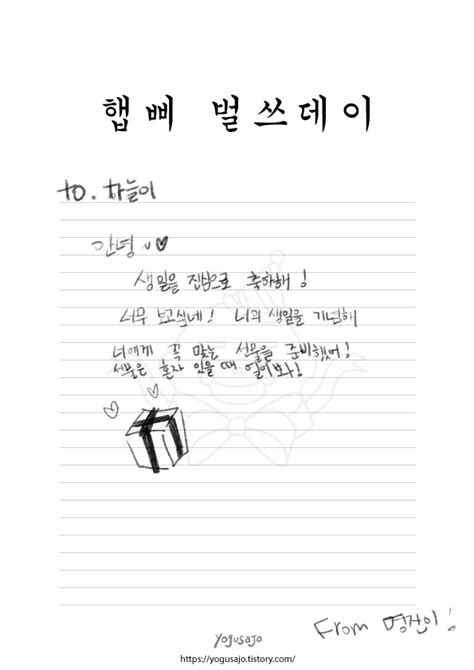 햅삐 벌쓰데이
to. 하늘이
안녕
생일을 진심으로 축하해!
너무 보고싶네! 너의 생일을 기념해
너에게 꼭 맞는 선물을 준비했어!
선물은 혼자 있을 때 열어봐!
From 명진이!
yogusajo
https://yogusajo.tistory.com/